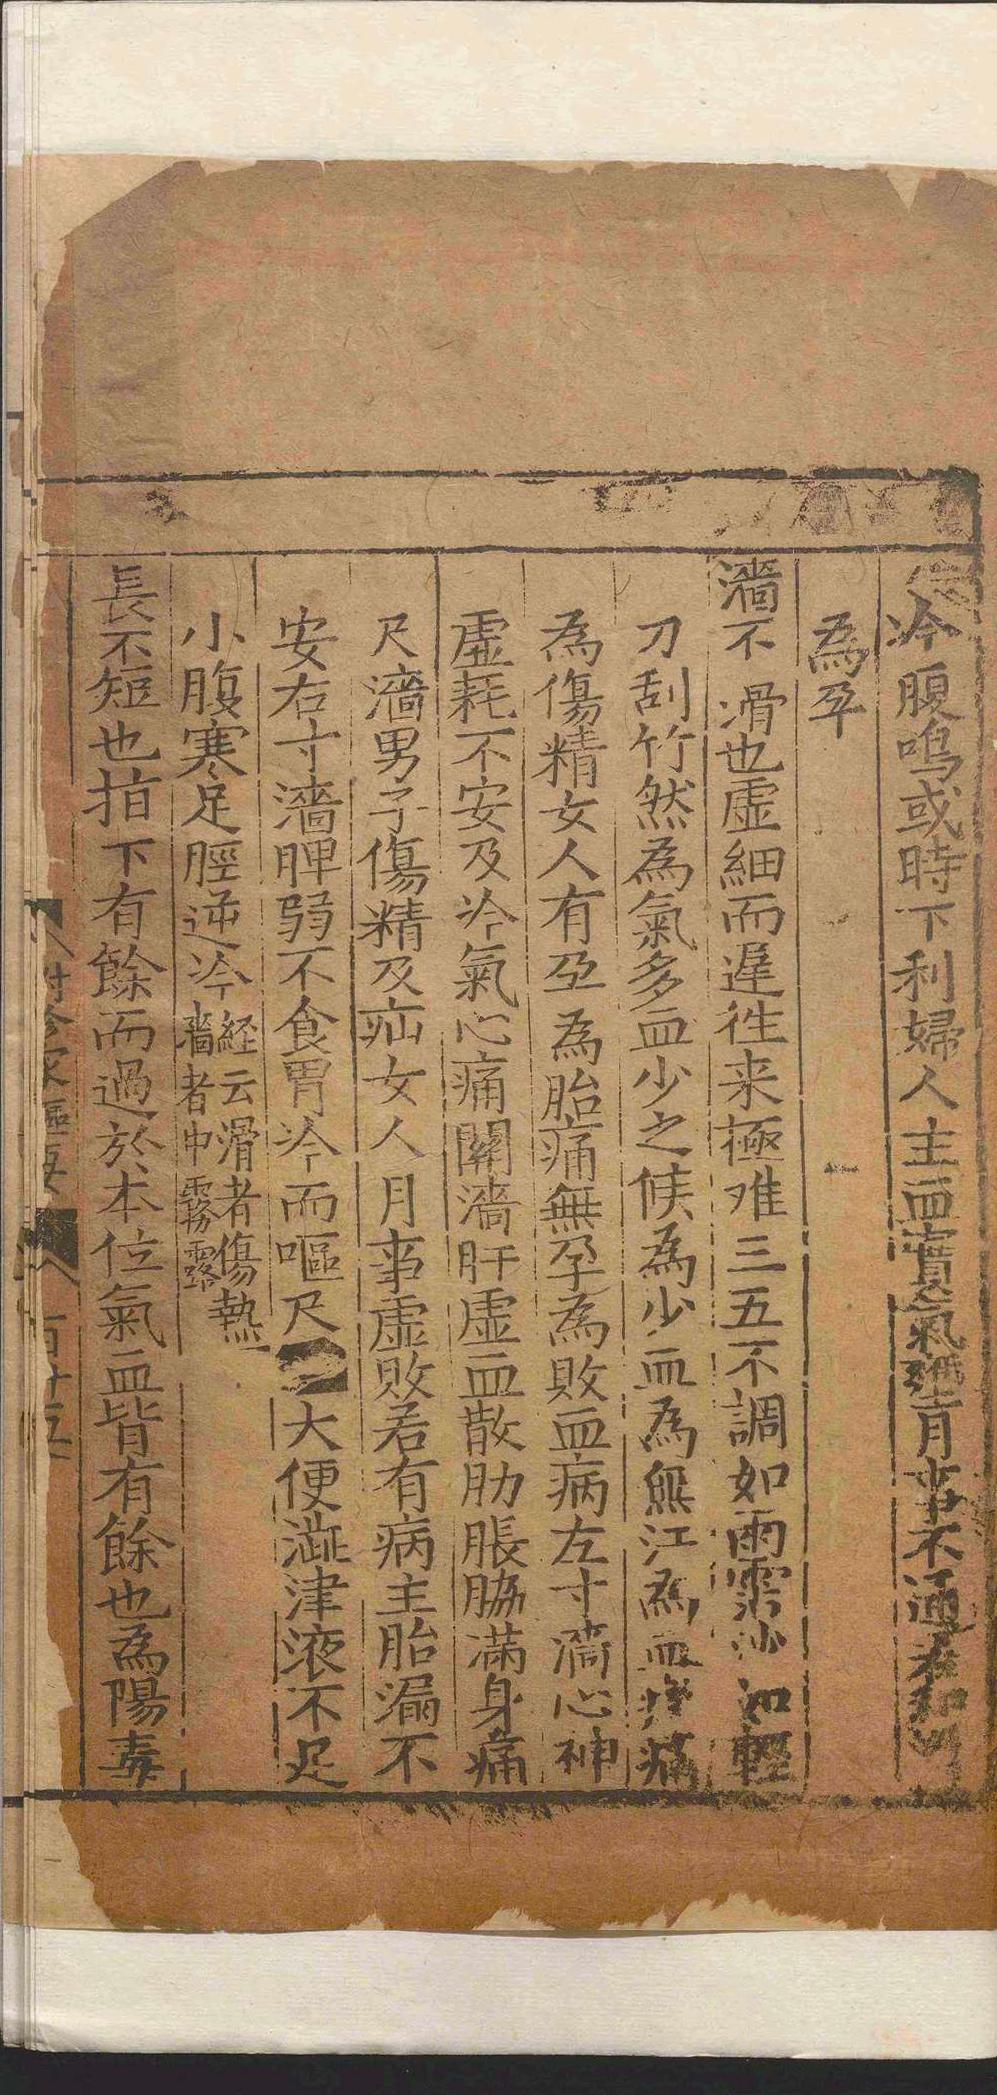 冷腹鳴或時下利婦人主血實氣壅月事不通若和滑
為孕
濇不滑也虛細而遲徃来極难三五不調如雨霑沙如輕
刀刮竹然為氣多血少之候為少血為無汗為血痺痛
為傷精女人有孕為胎痛無孕為敗血病左寸濇心神
虛耗不安及冷氣心痛關濇肝虛血散肋脹脇滿身痛
尺濇男子傷精及疝女人月事虛敗若有病主胎漏不
安右寸濇脾弱不食胃冷而嘔尺大便澁津液不足
小腹寒足脛逆冷経云滑者傷熱濇者中霧露
長不短也指下有餘而過於本位氣血皆有餘也為陽毒
百廿五